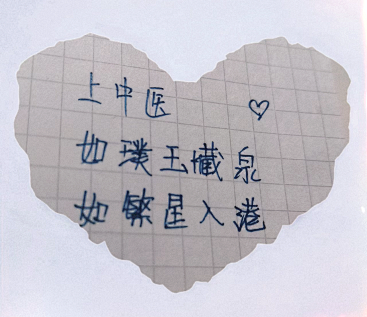 上中医 ♡
如璞玉藏泉
如繁星入港